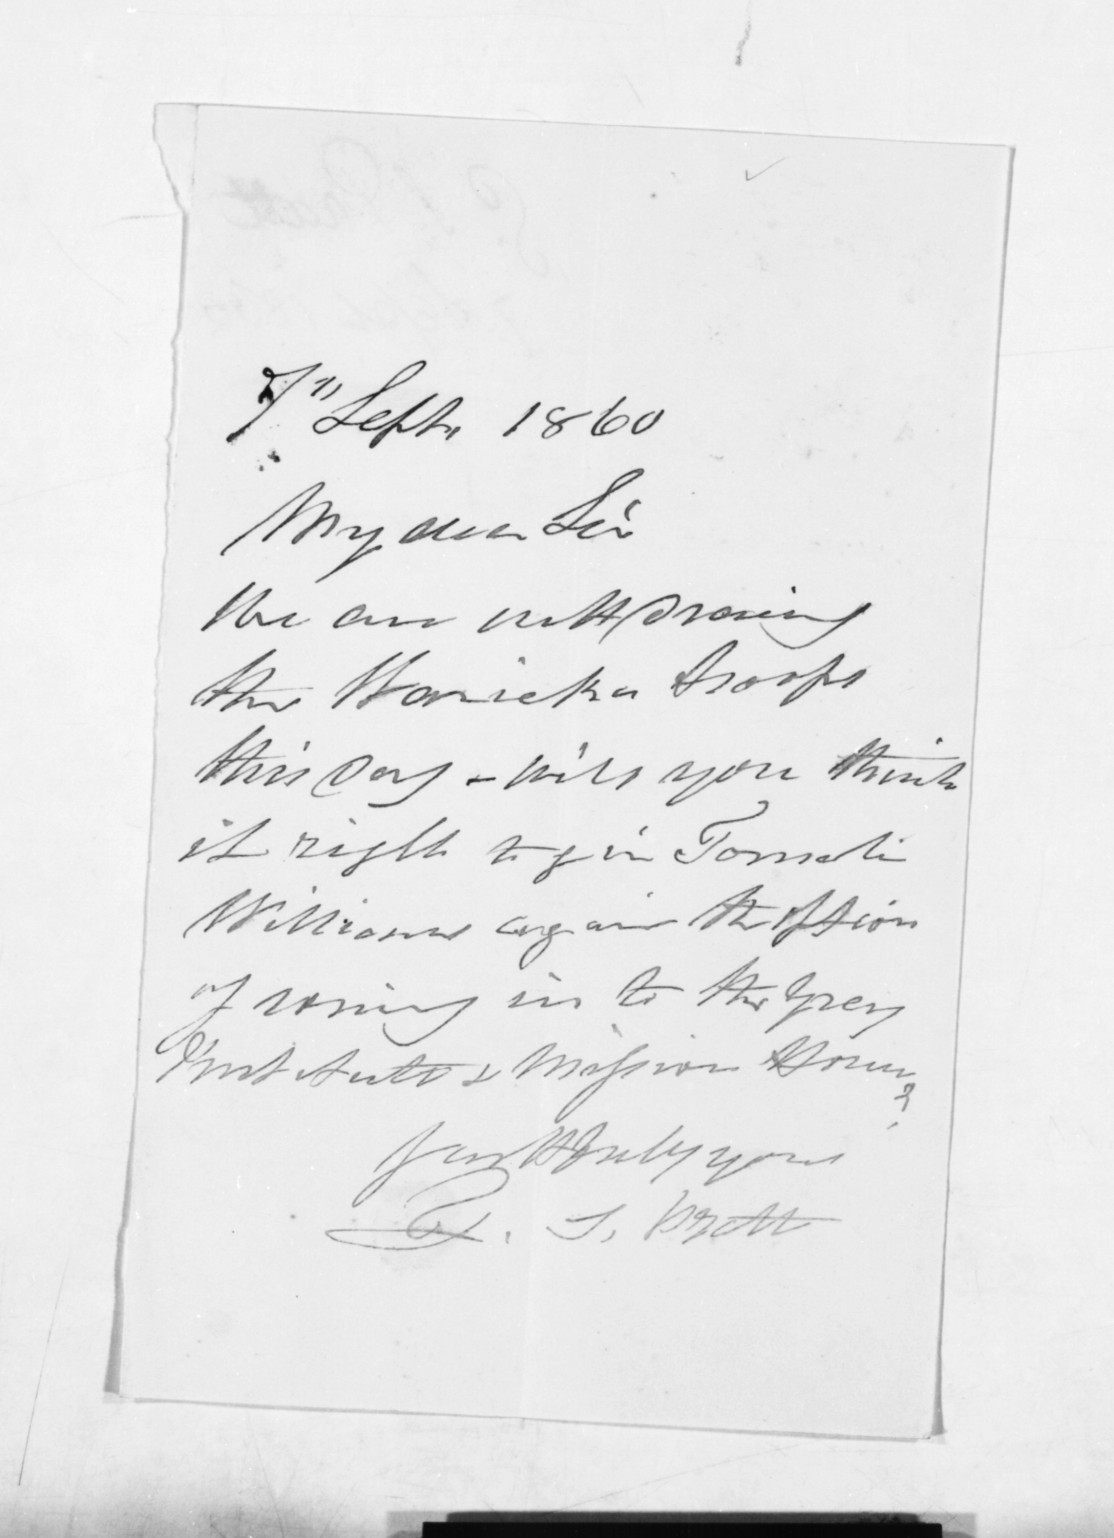 7" Sept. 1860
My dear Sir
We are withdrawing
the Wareeka troops
this day - will you think
it right to give
Williams again the option
of coming in to the Grey
Institute & Mission House
?
faithfully yours
T. S. Pratt